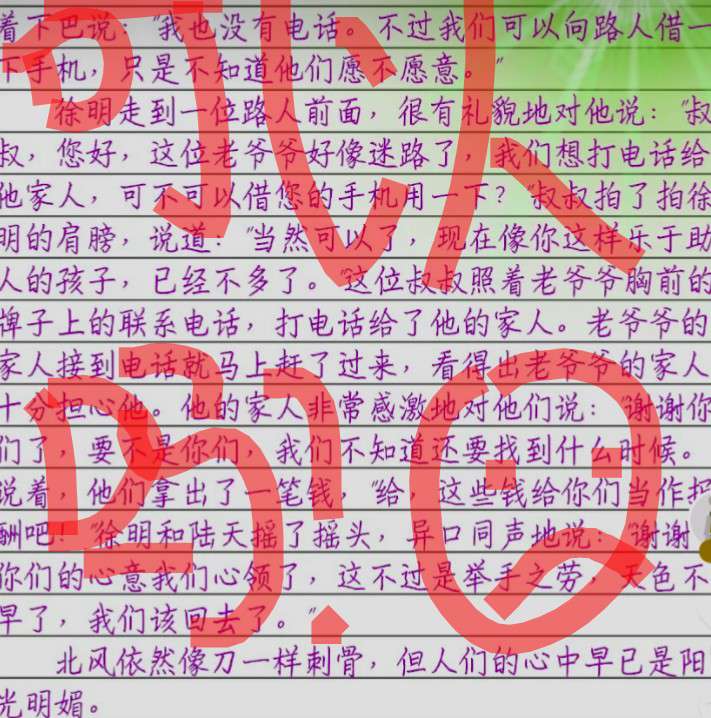 着下巴说：“我也没有电话。不过我们可以向路人借一
下手机，只是不知道他们愿不愿意。”
徐明走到一位路人前面，很有礼貌地对他说：“叔
叔，您好，这位老爷爷好像迷路了，我们想打电话给
他家人，可不可以借您的手机用一下？”叔叔拍了拍徐
明的肩膀，说道：“当然可以了，现在像你这样乐于助
人的孩子，已经不多了。”这位叔叔照着老爷爷胸前的
牌子上的联系电话，打电话给了他的家人。老爷爷的
家人接到电话就马上赶了过来，看得出老爷爷的家人
十分担心他。他的家人非常感激地对他们说：“谢谢你
们了，要不是你们，我们不知道还要找到什么时候。”
说着，他们拿出了一笔钱，“给，这些钱给你们当作报
酬吧！”徐明和陆天摇了摇头，异口同声地说：“谢谢
你们的心意我们心领了，这不过是举手之劳，天色不
早了，我们该回去了。”
北风依然像刀一样刺骨，但人们的心中早已是阳
光明媚。